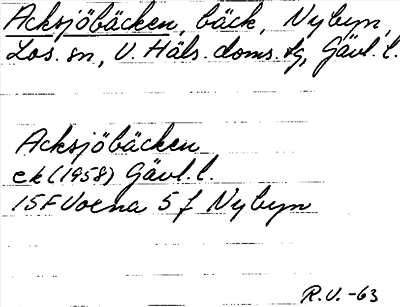 Acksjöbäcken, bäck, Nybyn,
Los. sn, V. Häls. doms. tg, Gävl. l.
Acksjöbäcken
ek (1958) Gävl. l.
15F Voxna 5 f Nybyn
R.V. -63